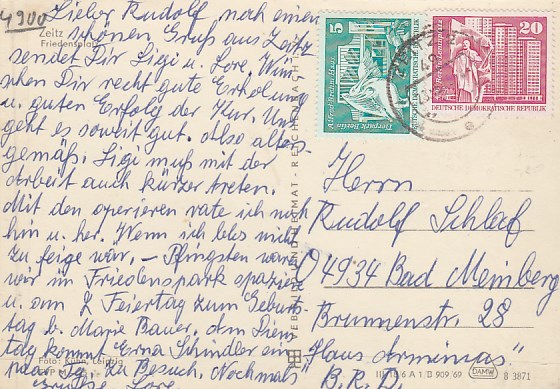 4900
Zeitz
Friedensplatz
Lieber Rudolf, noch einen
schönen Gruß aus Zeitz
sendet Dir Sigi u. Lore. Wün-
schen Dir recht gute Erholung
u. guten Erfolg der Kur. Uns
geht es soweit gut. Also alters-
gemäß. Sigi muß mit der
Arbeit auch kürzer treten.
Mit den operieren rate ich noch
hin u. her. Wenn ich bles nicht
zu feige wär. – Pfingsten waren
wir im Friedenspark spazieren
u. am 2 Feiertag zum Geburts-
tag b. Marie Bauer. Am Diens-
tag kommt Erna Schindler ein
paar Tg. zu Besuch. Nochmals
Grüße Lore
Foto: Kuhn, Leipzig
VERLAG BILD UND HEIMAT REICHENBACH
5
Alfred-Brehm-Haus
Tierpark Berlin
20
DEUTSCHE DEMOKRATISCHE REPUBLIK
Herrn
Rudolf Schlaf
D 4934 Bad Meinberg
Brunnenstr. 28
"Haus Arminius"
B.R.D.
III/18/6 A 1 D 909/69
DAMW
B 3871